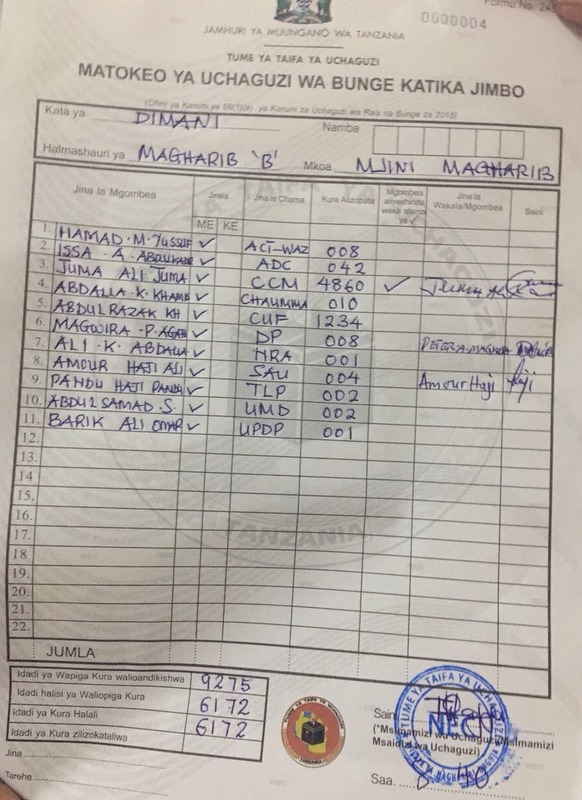 Formu Na. 24
0000004
JAMHURI YA MUUNGANO WA TANZANIA
TUME YA TAIFA YA UCHAGUZI
MATOKEO YA UCHAGUZI WA BUNGE KATIKA JIMBO
(Chini ya Kanuni ya 66(1)(e) ya Kanuni za Uchaguzi wa Rais na Bunge za 2015)
Kata ya DIMANI Namba
Halmashauri ya MAGHARIB 'B' Mkoa MJINI MAGHARIIB
Jina la Mgombea Jinsia Jina la Chama Kura Alizopata Mgombea aliyeshinda weka alama ya ✓ Jina la Wakala/Mgombea Saini
ME KE
1. HAMAD. M. YUSSUF ✓ ACT-WAZ 008
2. ISSA . A. ✓ ADC 042
3. JUMA ALI JUMA ✓ CCM 4860 ✓
4. ABDALLA . K. KHAMIS ✓ CHAUMMA 010
5. ABDULRAZAK KH ✓ CUF 1234
6. MAGWIRA . P. ✓ DP 008
7. ALI . K. ABDALLA ✓ NRA 001
8. AMOUR HAJI ALI ✓ SAU 004 Amour Haji
9. PANDU HAJI PANDU ✓ TLP 002
10. ABDULSAMAD . S. ✓ UMD 002
11. BARIK ALI OMAR ✓ UPDP 001
12.
13.
14
15.
16.
17.
18
19.
20.
21.
22.
JUMLA
Idadi ya Wapiga Kura walioandikishwa 9275
Idadi halisi ya Waliopiga Kura 6172
Idadi ya Kura Halali 6172
Idadi ya Kura zilizokataliwa
Jina
Tarehe
TUME YA TAIFA YA UCHAGUZI
TANZANIA
Saini
("Msimamizi wa Uchaguzi/Msimamizi
Msaidizi wa Uchaguzi)
Saa.
TUME YA TAIFA YA UCHAGUZI
NEC